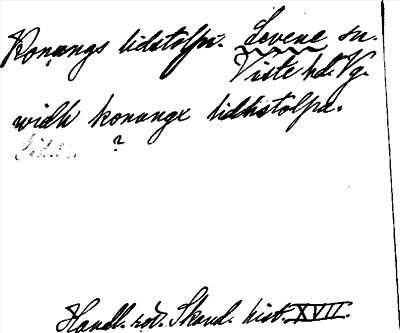 Konungs lidstolpe. Levene sn.
Viste hd. Vg.
widh konungx lidhstolpa.
?
Handl. rör. Skand. hist. XVII.